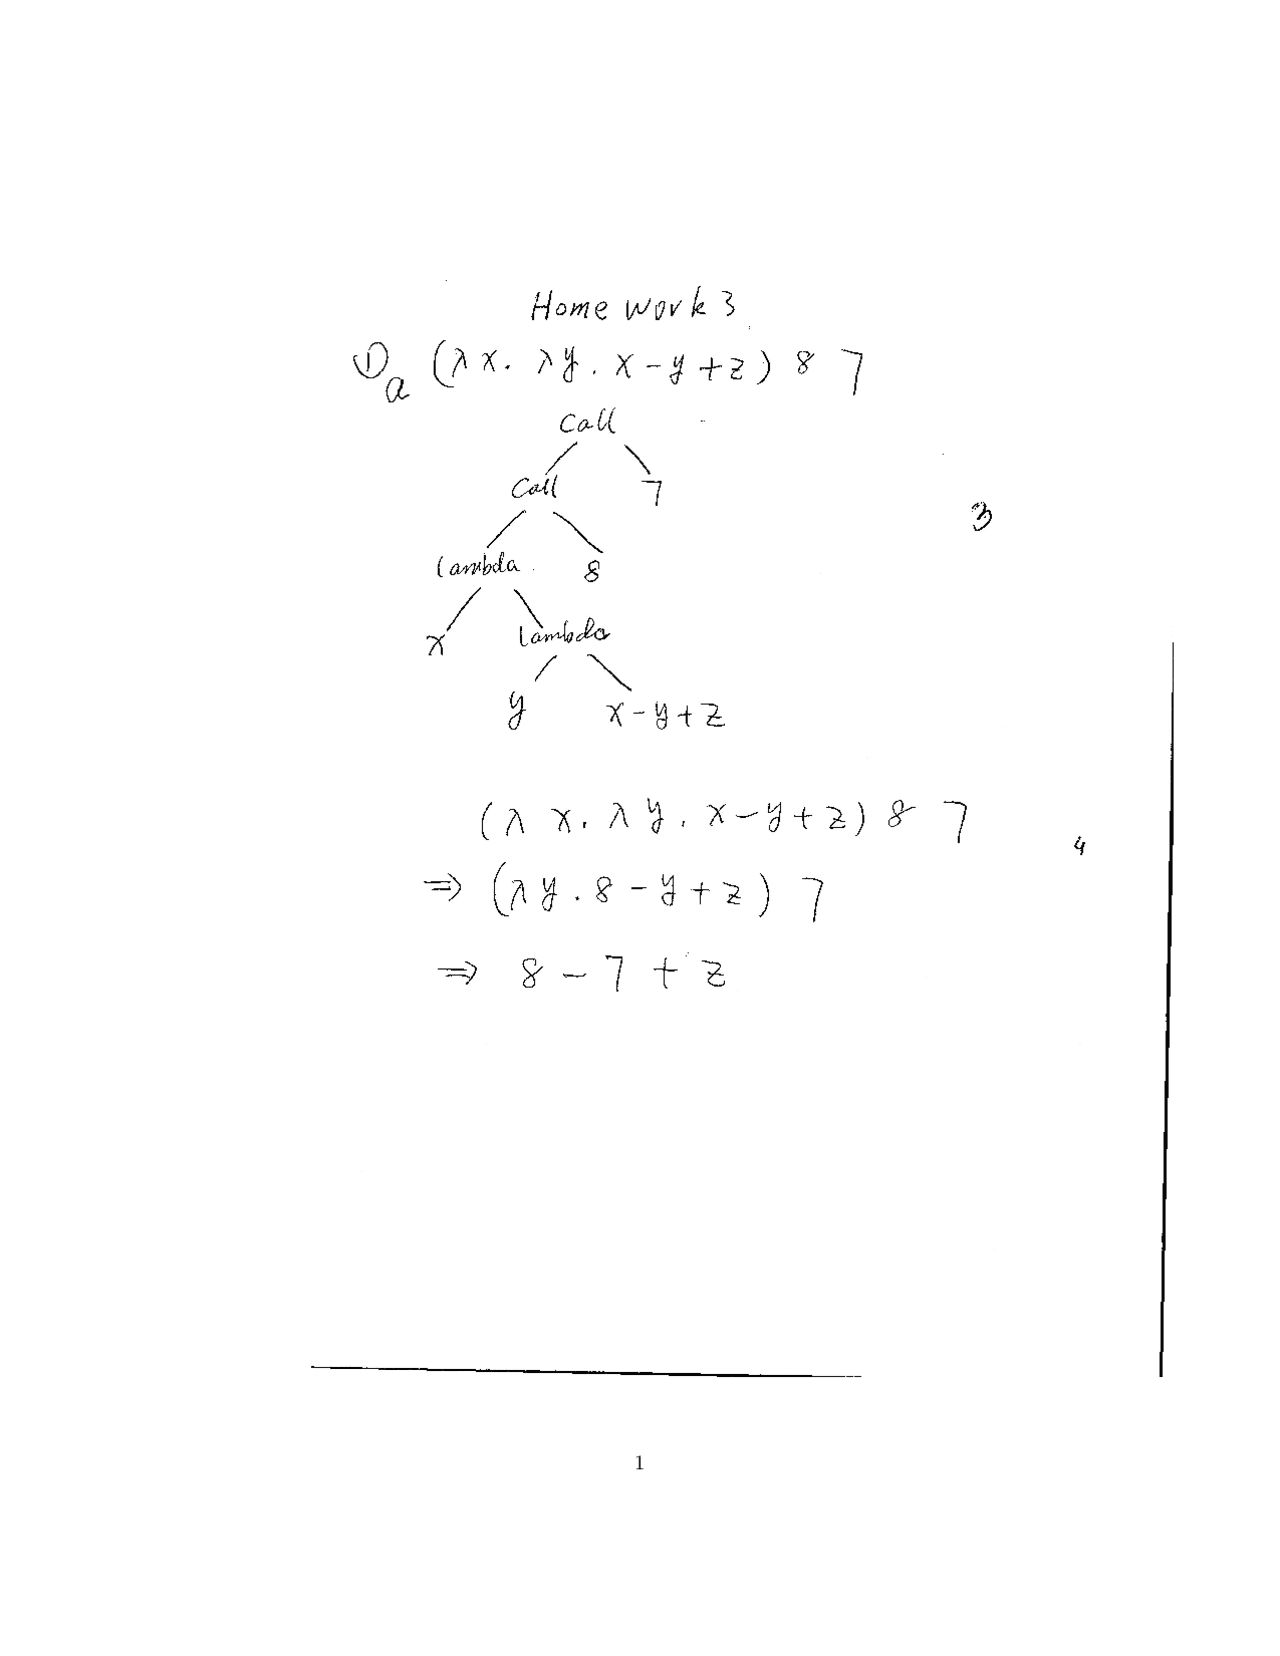 Home Work 3
① a (λx. λy. x-y+z) 8 7
Call
Call 7
3
lambda 8
x lambda
y x-y+z
(λ x. λ y. x-y+z) 8 7
4
⇒ (λy. 8-y+z) 7
⇒ 8-7+z
1